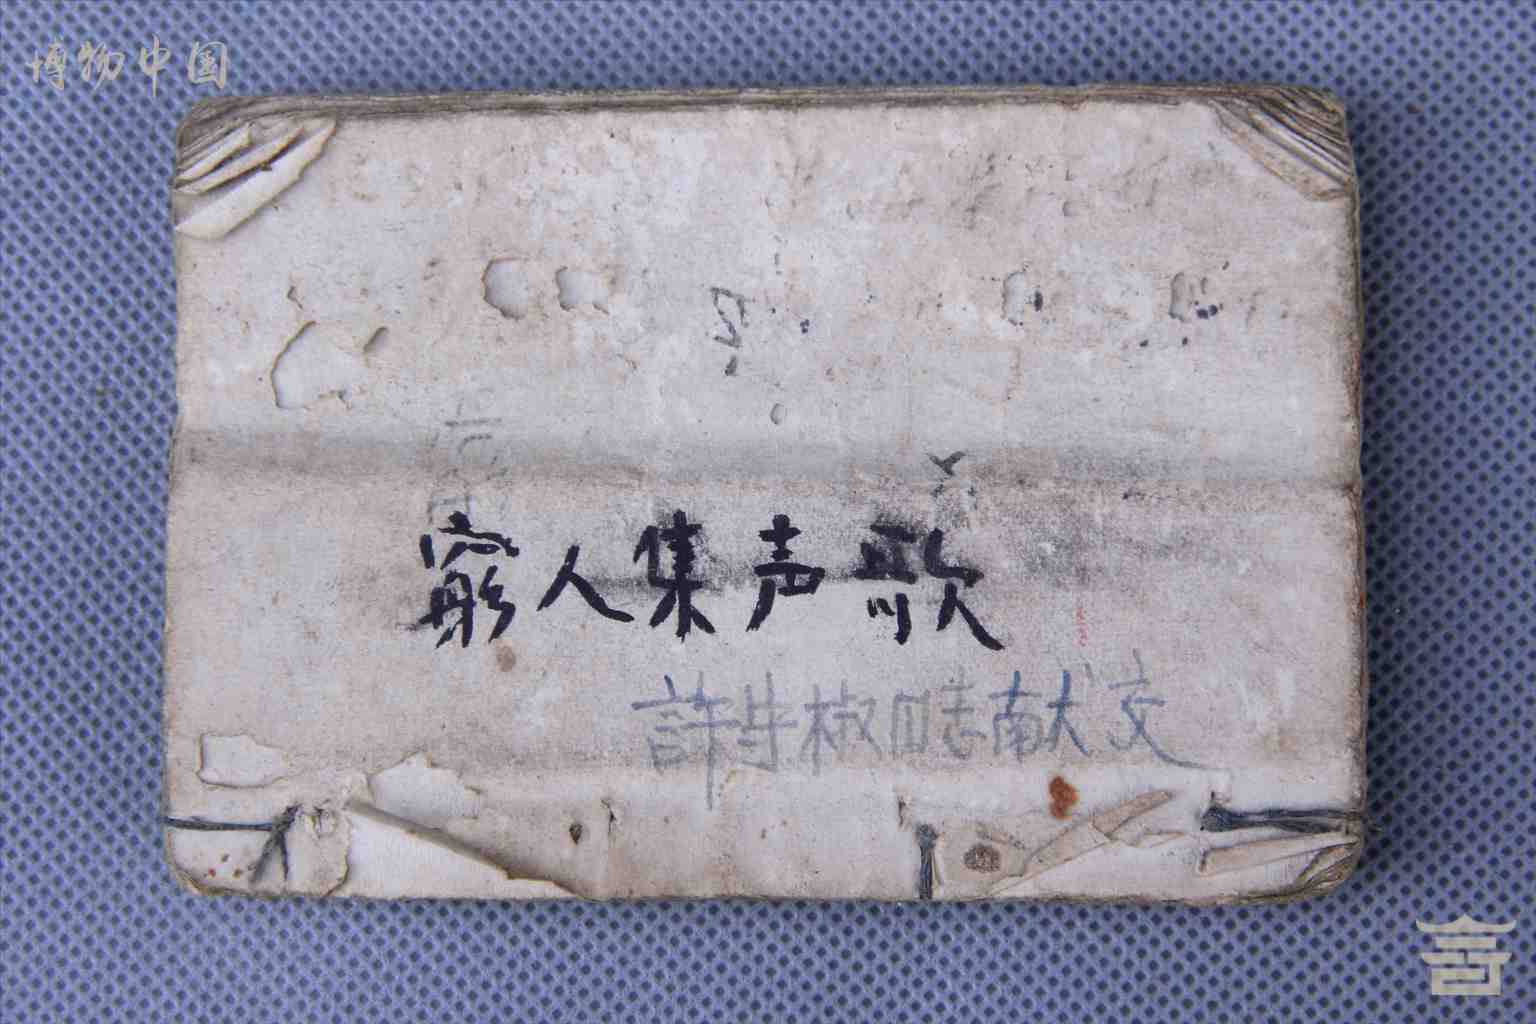 博物中国
窮人集声歌
許牛椒同志献交